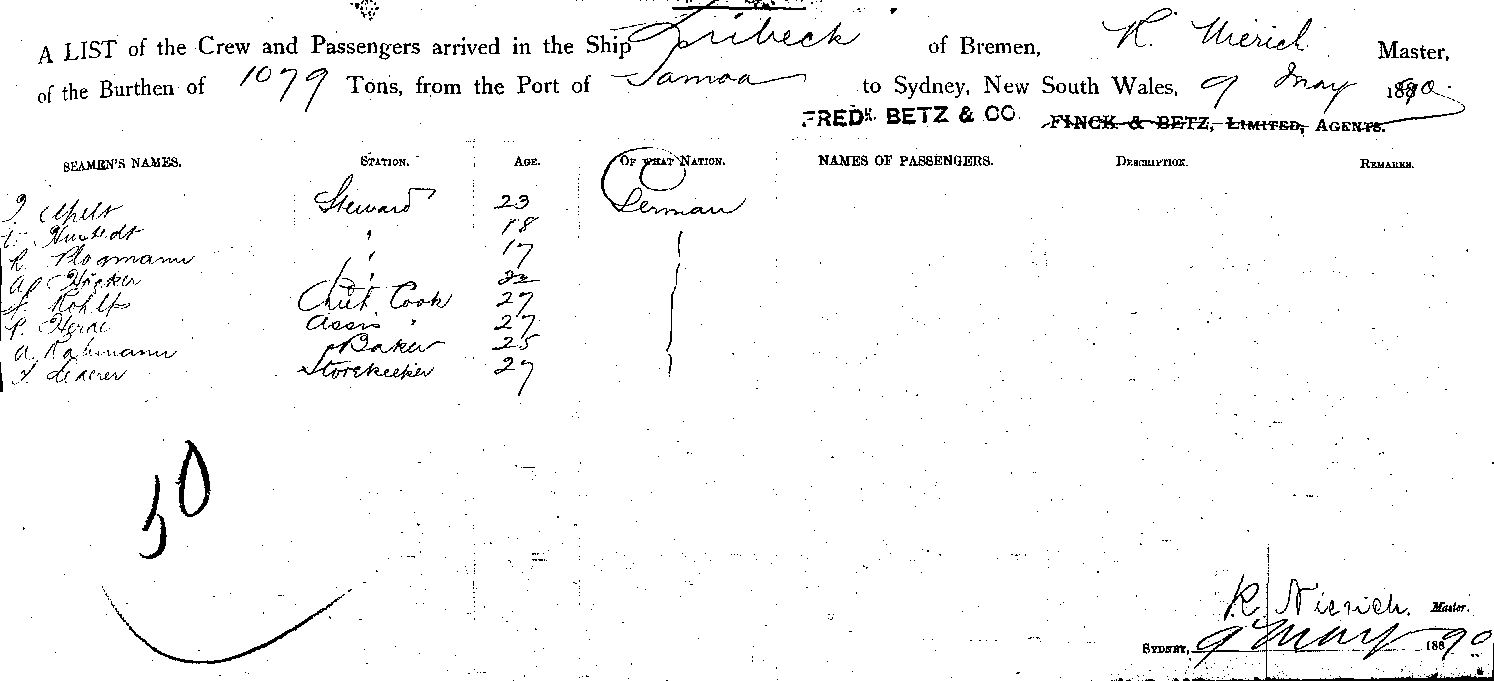 A LIST of the Crew and Passengers arrived in the Ship Lübeck of Bremen, R. Nierich Master,
of the Burthen of 1079 Tons, from the Port of Samoa to Sydney, New South Wales, 9 May 1890
FREDK. BETZ & CO. FINCK & BETZ, LIMITED, AGENTS.
SEAMEN'S NAMES. STATION. AGE. OF WHAT NATION. NAMES OF PASSENGERS. DESCRIPTION. REMARKS.
Steward 23 German
" 18
R. Plogmann " 17
Höcker " 22
Chief Cook 27
Assis " 27
Baker 25
Storekeeper 27
50
R. Nierich. Master.
SYDNEY, 9 May 1890